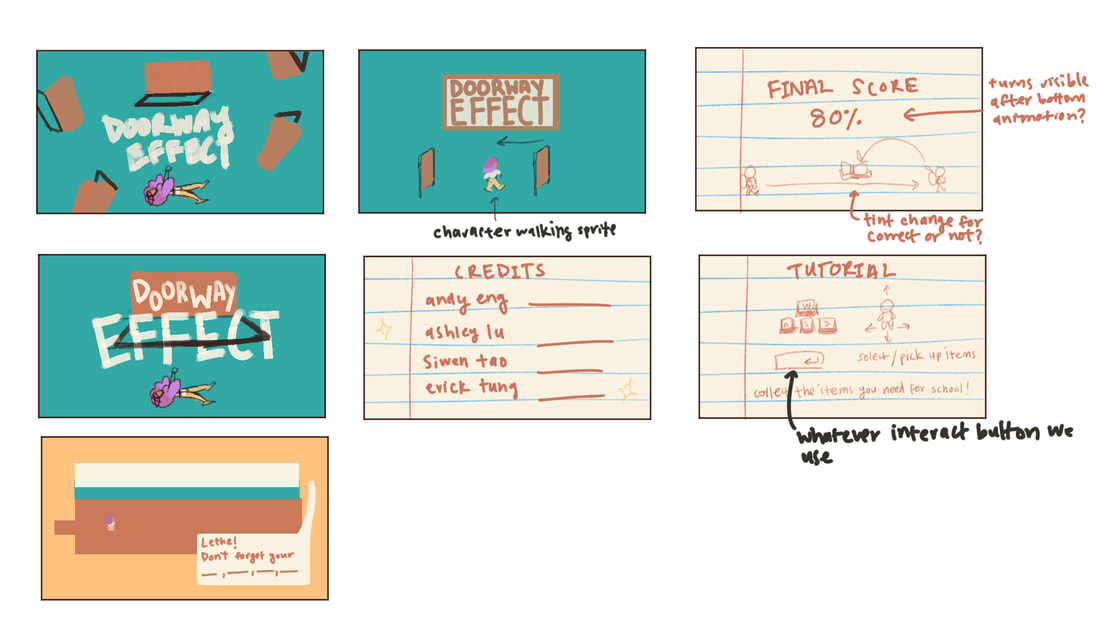 DOORWAY
EFFECT
DOORWAY
EFFECT
character walking sprite
FINAL SCORE
80%
turns visible
after bottom
animation?
tint change for
correct or not?
DOORWAY
EFFECT
CREDITS
andy eng
ashley lu
Siwen tao
erick tung
TUTORIAL
W
A S D
select/pick up items
collect the items you need for school!
whatever interact button we
use
Lethe!
Don't forget your